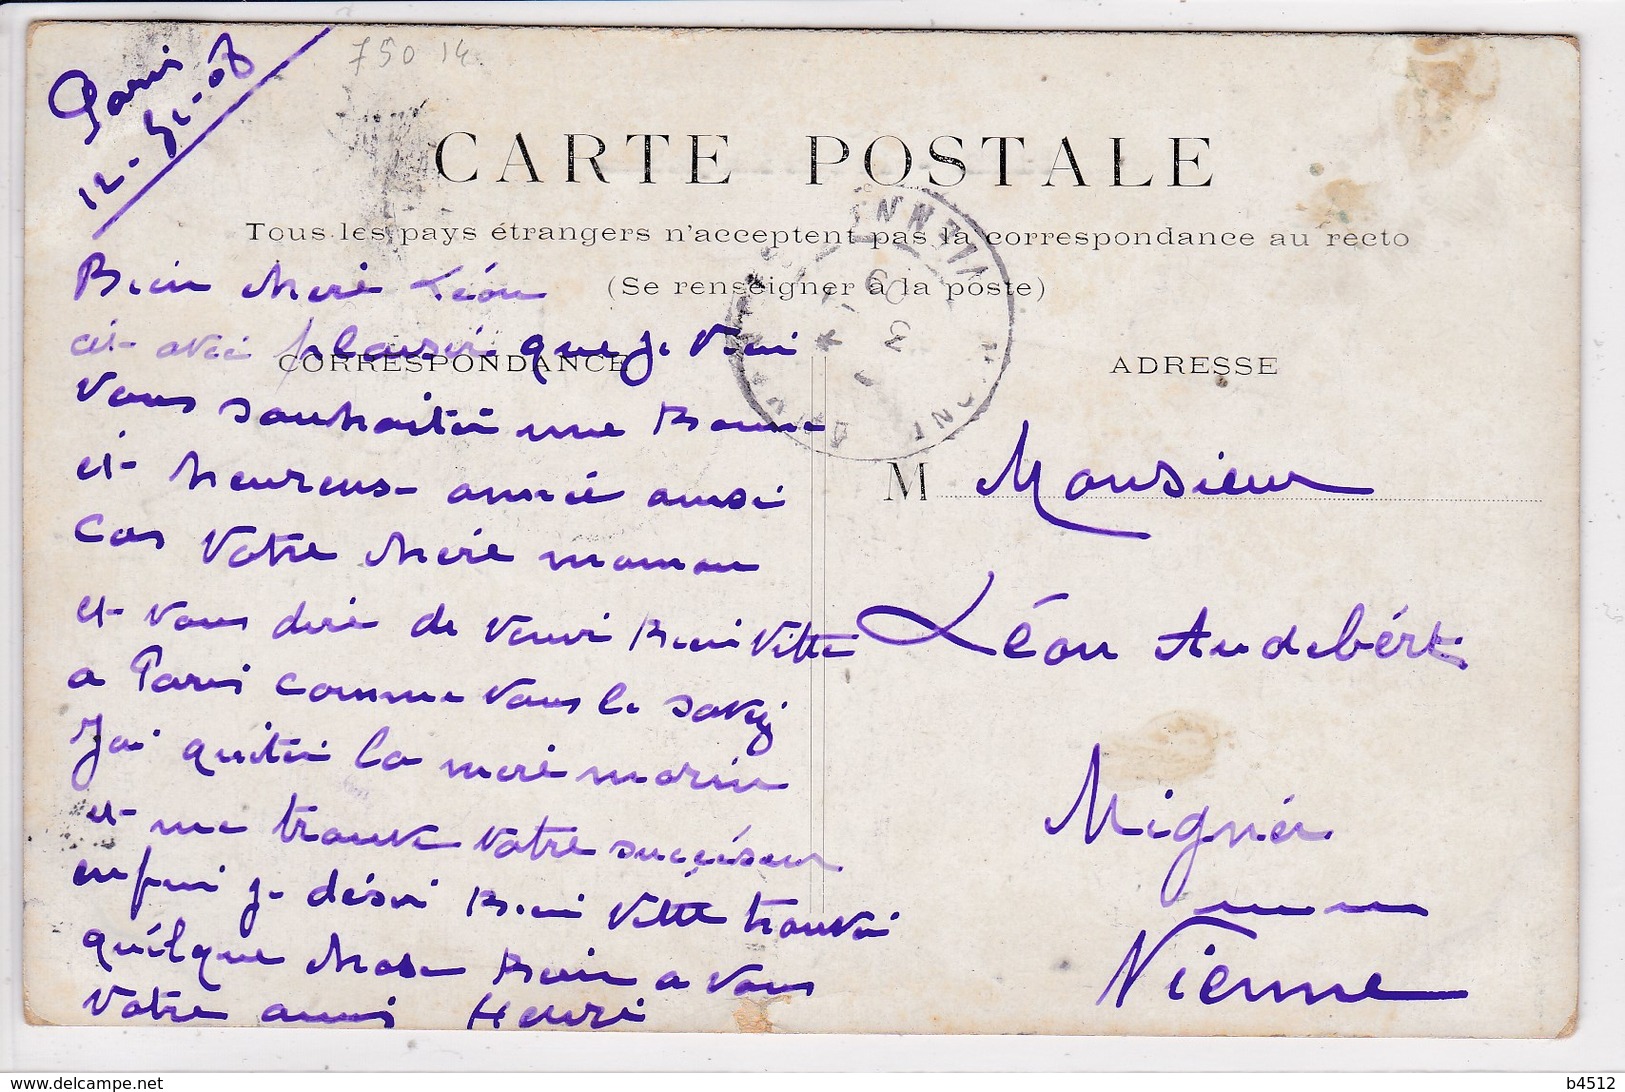 Paris
12-31-08
750 14
CARTE POSTALE
Tous les pays étrangers n'acceptent pas la correspondance au recto
(Se renseigner à la poste)
CORRESPONDANCE
ADRESSE
Bien chere Léon
cét avec plaisir que je vien
vous souhaiter une Bonne
et heureuse année ainsi
cas votre chere maman
et vous dire de venir Bien vitte
a Paris comme vous le savez
J'ai quiter la mere marin
et me trouve votre succéseur
enfin je désir Bien vitte trouver
quélque chose Bien a vous
votre ami Henri
M Monsieur
Léon Audebért
Migné
Vienne
VIENNE
b4512
www.delcampe.net